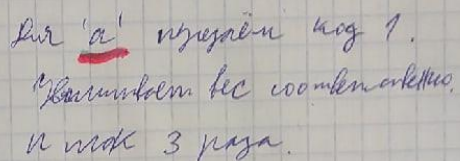 Для 'a' пускаем код 1.
Увеличивает вес соответственно.
И так 3 раза.